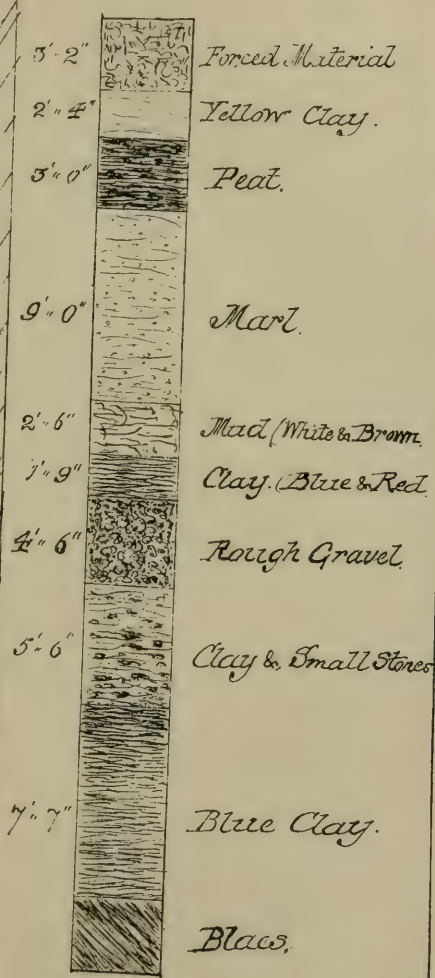 3'-2" Forced Material
2'-4" Yellow Clay.
3'-0" Peat.
9'-0" Marl.
2'-6" Mud (White & Brown.
1'-9" Clay. (Blue & Red.
4'-6" Rough Gravel.
5'-6" Clay & Small Stones
7'-7" Blue Clay.
Blaes.